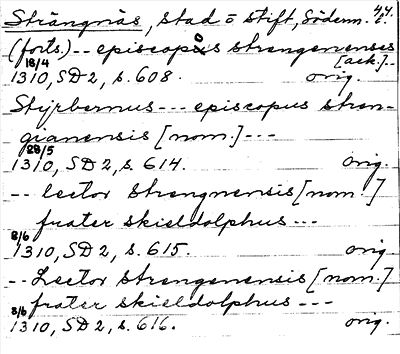 Strängnäs, stad o stift, Söderm. l. 44.
(forts.) -- episcopos strengenenses
[ack.] --
18/4
1310, SD 2, s. 608. orig.
Styrbernus --- episcopus stren-
gianensis [nom.] ---
28/5
1310, SD 2, s. 614. orig.
-- lector strengnensis [nom.]
frater skieldolphus ---
8/6
1310, SD 2, s. 615. orig.
-- Lector strengenensis [nom.]
frater skieldolphus ---
8/6
1310, SD 2, s. 616. orig.